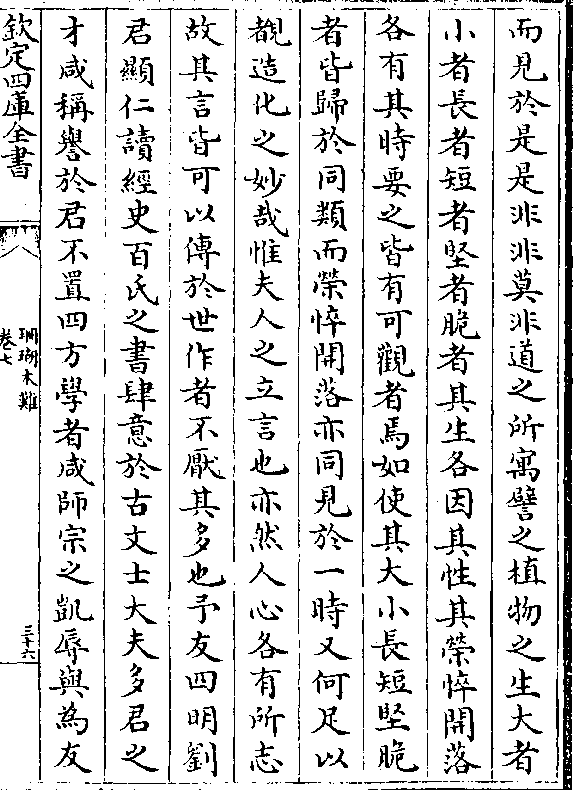 而見於是是非非莫非道之所寓譬之植物之生大者
小者長者短者堅者脆者其生各因其性其榮悴開落
各有其時要之皆有可觀者焉如使其大小長短堅脆
者皆歸於同類而榮悴開落亦同見於一時又何足以
覩造化之妙哉惟夫人之立言也亦然人心各有所志
故其言皆可以傳於世作者不厭其多也予友四明劉
君顯仁讀經史百氏之書肆意於古文士大夫多君之
才咸稱譽於君不置四方學者咸師宗之凱辱與為友
欽定四庫全書
珊瑚木難
卷七
三十六